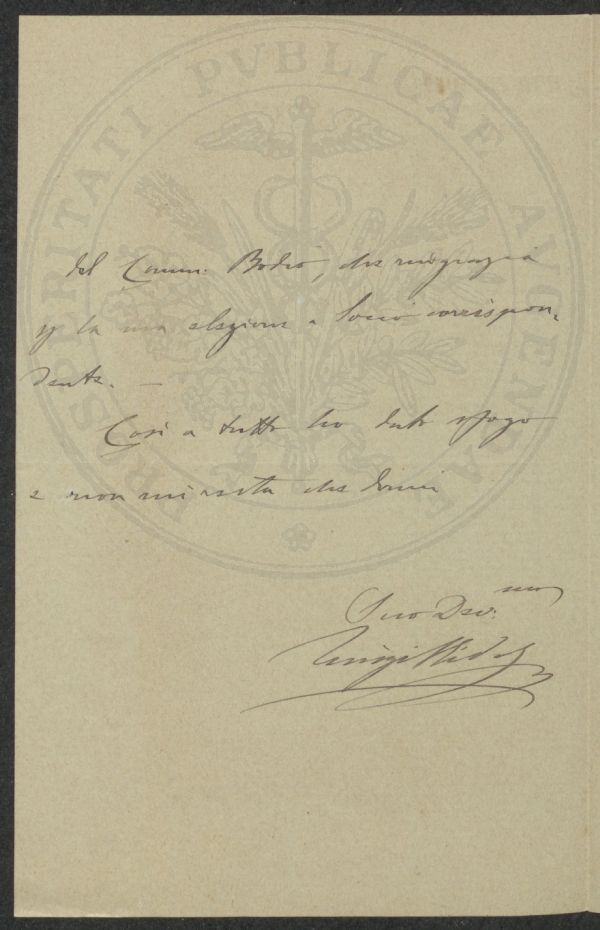 PROSPERITATI PVBLICAE AVGENDAE
del Comm. Bodio, che ringrazia
p la sua elezione a Socio corrispon-
dente. —
Così a tutto ho dato sfogo
e non mi resta che dirmi
Suo Dev.mo
Luigi